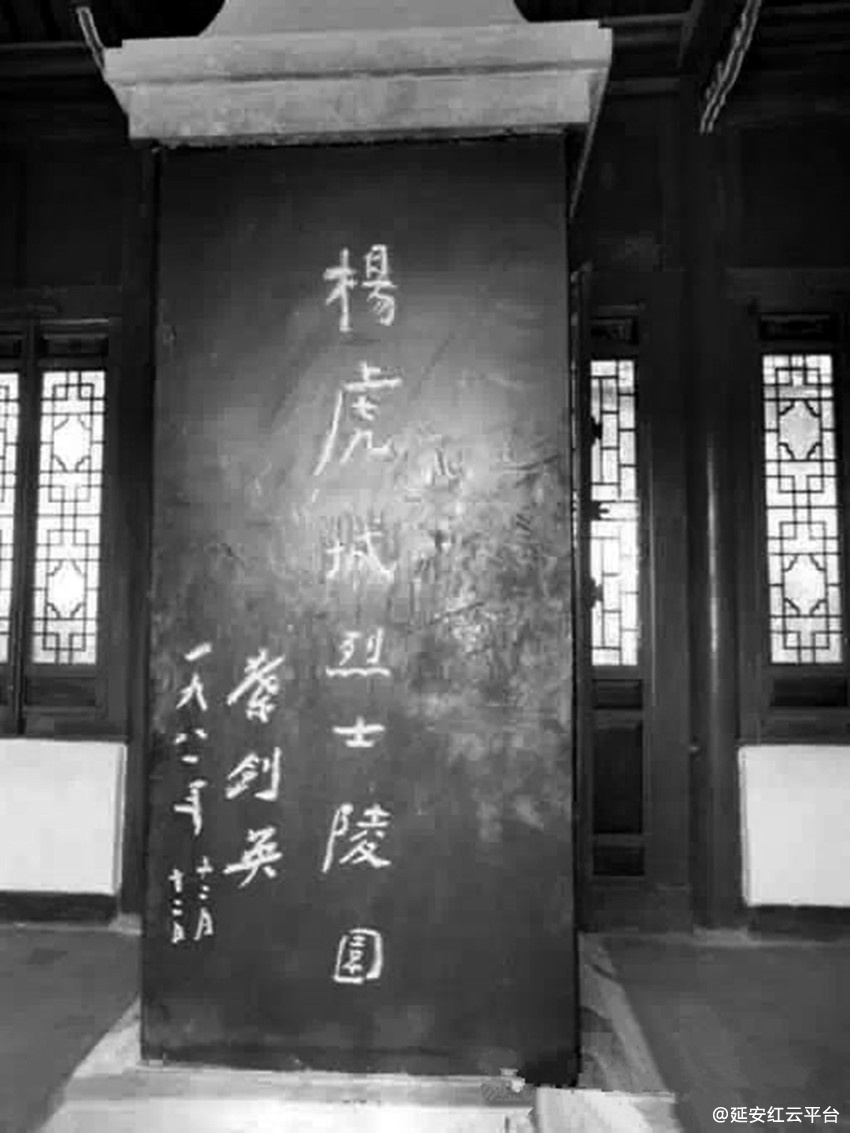 楊虎城烈士陵園
葉剑英
一九八一年
十二月
十二日
@延安红云平台